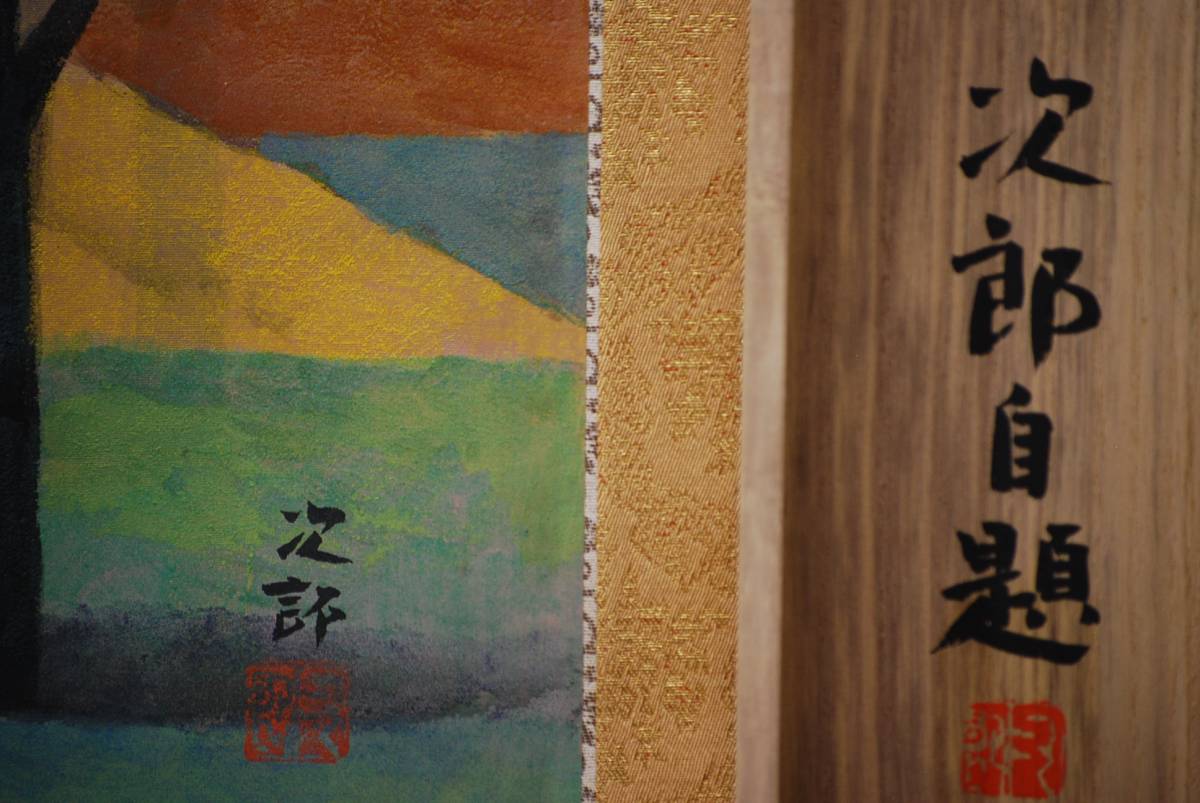 次郎自題
次郎